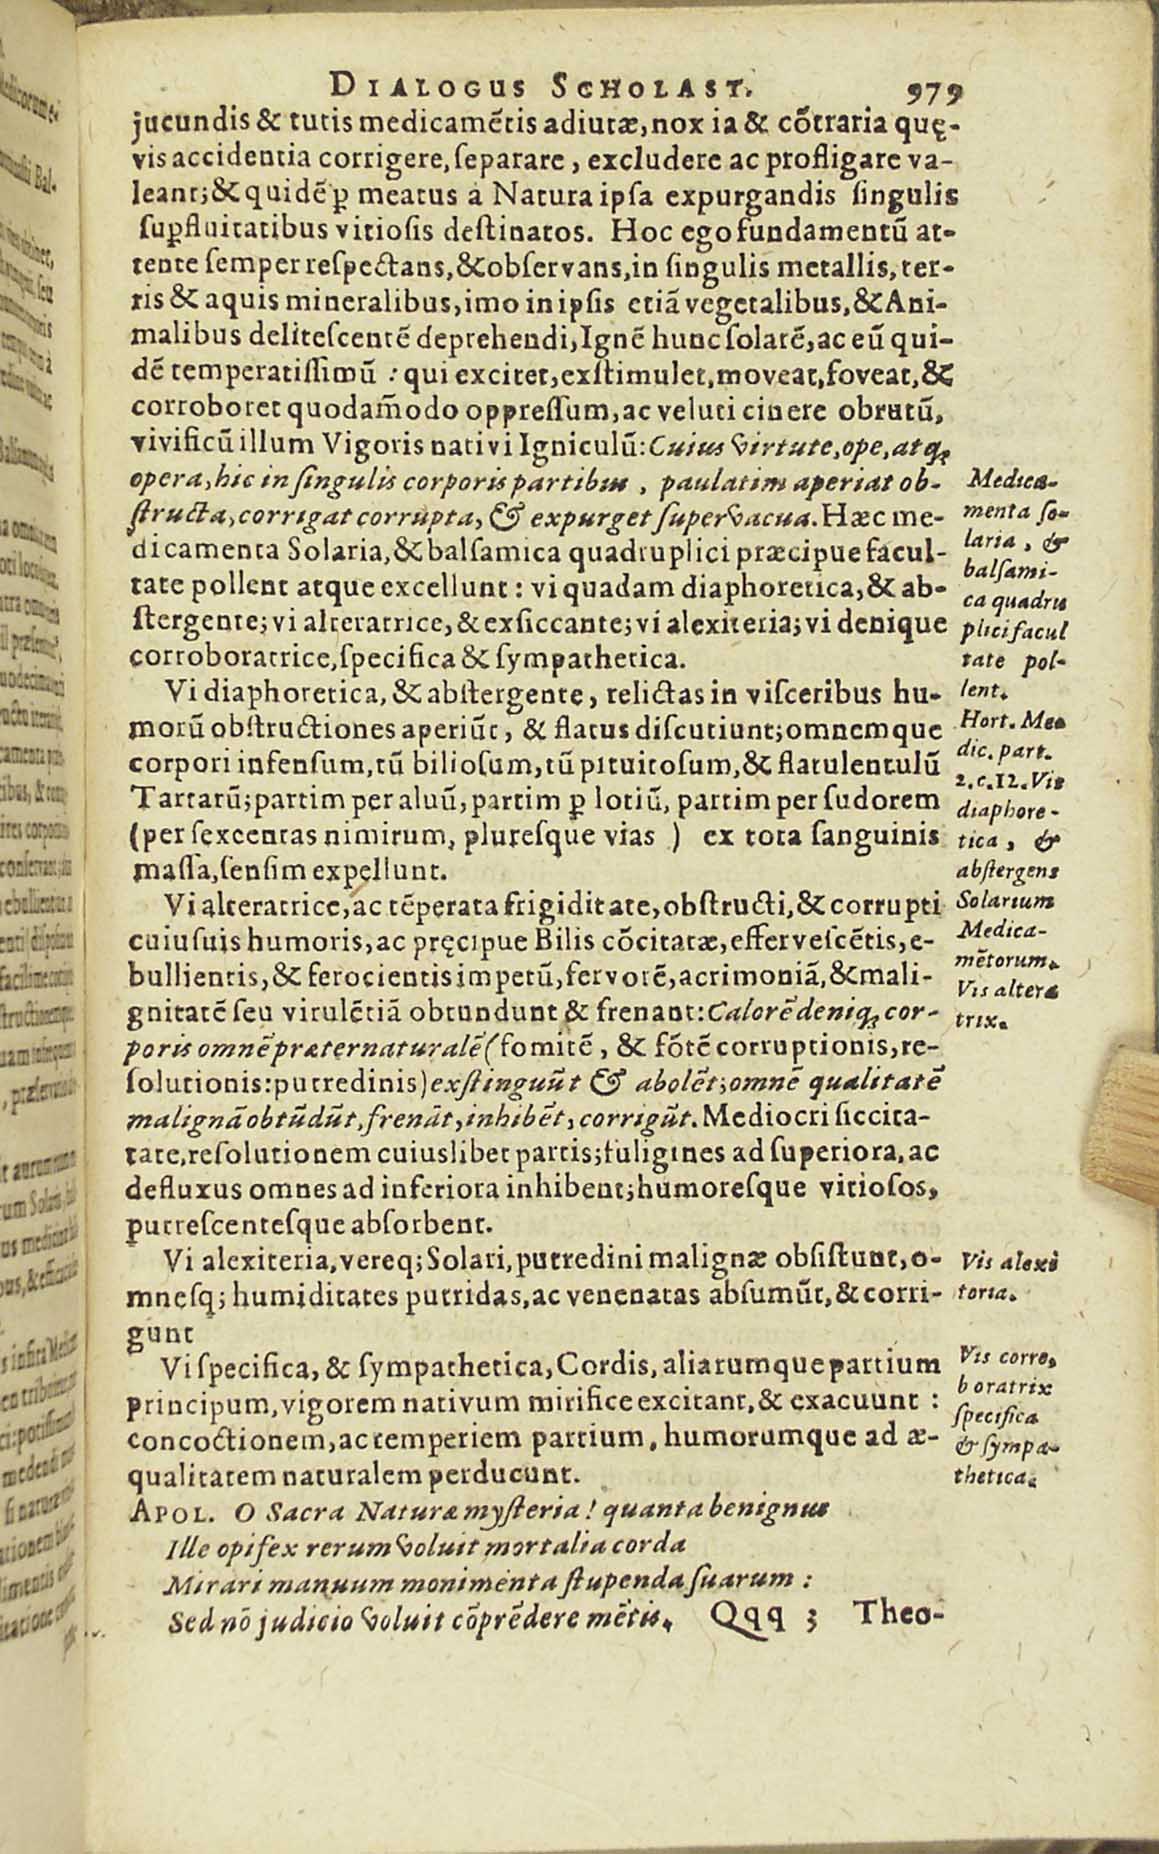 DIALOGUS SCHOLAST. 979
jucundis & tutis medicamẽtis adiutæ, nox ia & cõtraria quę-
vis accidentia corrigere, ſeparare, excludere ac profligare va-
leant; & quidẽ ꝑ meatus à Natura ipſa expurgandis ſingulis
ſuꝑfluitatibus vitioſis deſtinatos. Hoc ego fundamentũ at-
tente ſemper reſpectans, & obſervans, in ſingulis metallis, ter-
ris & aquis mineralibus, imo in ipſis etiã vegetalibus, & Ani-
malibus deliteſcentẽ deprehendi, Ignẽ hunc ſolarẽ, ac eũ qui-
dẽ temperatiſſimũ : qui excitet, exſtimulet, moveat, foveat, &
corroboret quodam̃odo oppreſſum, ac veluti cinere obrutũ,
vivificũ illum Vigoris nativi Igniculũ: Cuius virtute, ope, atq;
opera, hic in ſingulis corporis partibus, paulatim aperiat ob-
ſtructa, corrigat corrupta, & expurget ſupervacua. Hæc me-
dicamenta Solaria, & balſamica quadruplici præcipue facul-
tate pollent atque excellunt: vi quadam diaphoretica, & ab-
ſtergente; vi alteratrice, & exſiccante; vi alexiteria; vi denique
corroboratrice, ſpecifica & ſympathetica.
Medica-
menta ſo-
laria, &
balſami-
ca quadru
plici facul
tate pol-
lent.
Vi diaphoretica, & abſtergente, relictas in viſceribus hu-
morũ obſtructiones aperiũt, & flatus diſcutiunt; omnemque
corpori infenſum, tũ bilioſum, tũ pituitoſum, & flatulentulũ
Tartarũ; partim per aluũ, partim ꝑ lotiũ, partim per ſudorem
(per ſexcentas nimirum, plureſque vias ) ex tota ſanguinis
maſſa, ſenſim expellunt.
Hort. Me-
dic. part.
2. c. 12. Vis
diaphore-
tica, &
abſtergens
Solarium
Medica-
mẽtorum.
Vi alteratrice, ac tẽperata frigiditate, obſtructi, & corrupti
cuiuſuis humoris, ac pręcipue Bilis cõcitatæ, efferveſcẽtis, e-
bullientis, & ferocientis impetũ, fervorẽ, acrimoniã, & mali-
gnitatẽ ſeu virulẽtiã obtundunt & frenant: Calorẽ deniq; cor-
poris omnẽ præternaturalẽ (fomitẽ, & fõtẽ corruptionis, re-
ſolutionis: putredinis) exſtinguũt & abolẽt; omnẽ qualitatẽ
malignã obtũdũt, frenãt, inhibẽt, corrigũt. Mediocri ſiccita-
tate, reſolutionem cuiuslibet partis; fuligines ad ſuperiora, ac
defluxus omnes ad inferiora inhibent; humoreſque vitioſos,
putreſcenteſque abſorbent.
Vis altera
trix.
Vi alexiteria, vereq; Solari, putredini malignæ obſiſtunt, o-
mneſq; humiditates putridas, ac venenatas abſumũt, & corri-
gunt
Vis alexi
toria.
Vi ſpecifica, & ſympathetica, Cordis, aliarumque partium
principum, vigorem nativum mirifice excitant, & exacuunt :
concoctionem, ac temperiem partium, humorumque ad æ-
qualitatem naturalem perducunt.
Vis corro,
boratrix
ſpecifica
& ſympa-
thetica.
APOL. O Sacra Naturæ myſteria! quanta benignus
Ille opifex rerum voluit mortalia corda
Mirari manuum monimenta ſtupenda ſuarum :
Sed nõ judicio voluit cõprẽdere mẽtis. Qqq 3 Theo-